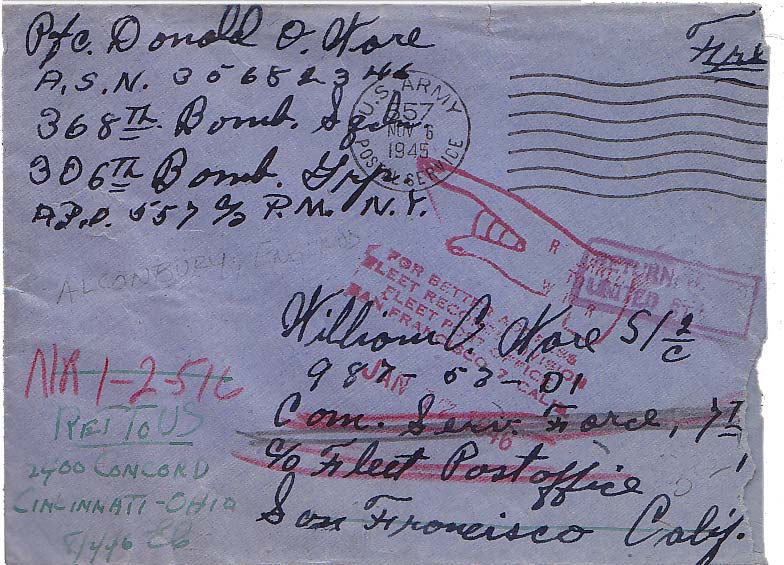 Pfc. Donald O. Ware
A.S.N. 35682346
368Th Bomb. Sqdn.
306Th Bomb. Grp.
A.P.O. 557 c/o P.M. N.Y.
Free
U.S. ARMY
557
NOV 6
1945
POSTAL SERVICE
ALCONBURY, ENGLAND
FOR BETTER ADDRESS
FLEET RECORDS DIVISION
FLEET POST OFFICE
SAN FRANCISCO 7, CALIF.
JAN
RETURN
TO
UNITED
William C Ware S1/c
987-53-01
Com. Serv. Force, 7Th
c/o Fleet Postoffice
San Francisco Calif.
NR 1-2-546
RET TO US
2400 CONCORD
CINCINNATI-OHIO